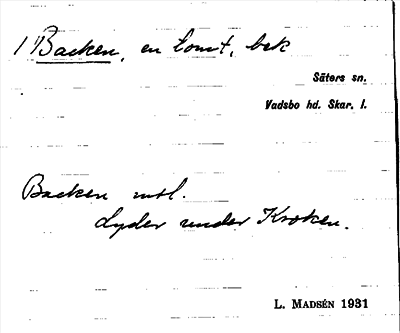 1 Backen, en tomt, bek
Säters sn.
Vadsbo hd. Skar. l.
Backen mtl.
Lyder under Kroken.
L. MADSÉN 1931